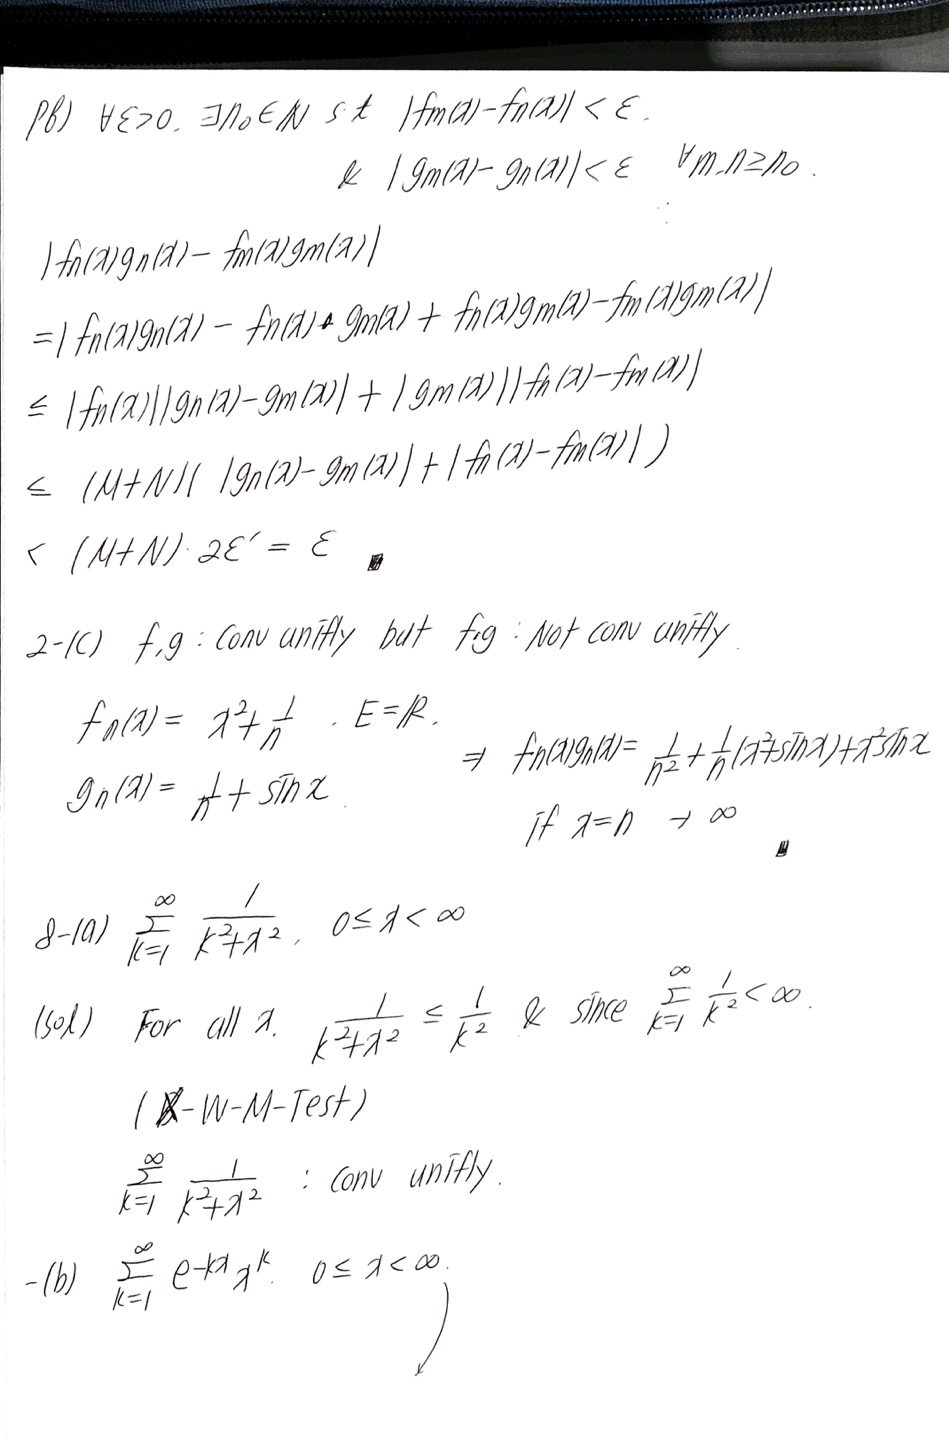 pf) ∀ε>0. ∃n₀∈ℕ s.t |fm(x)-fn(x)| < ε.
& |gm(x)-gn(x)| < ε ∀m,n≥n₀.
|fn(x)gn(x) - fm(x)gm(x)|
= |fn(x)gn(x) - fn(x)·gm(x) + fn(x)gm(x) - fm(x)gm(x)|
≤ |fn(x)||gn(x)-gm(x)| + |gm(x)||fn(x)-fm(x)|
≤ (M+N)( |gn(x)-gm(x)| + |fn(x)-fm(x)| )
< (M+N)·2ε' = ε
2-(c) f,g : conv unifly but f·g : Not conv unifly.
fn(x) = x²+1/n . E=ℝ.
gn(x) = 1/n + sinx
⇒ fn(x)gn(x) = 1/n² + 1/n(x²+sinx)+x²sinx
if x=n → ∞
8-(a) ∑_{k=1}^{∞} 1/(k²+x²), 0≤x<∞
(sol) For all x. 1/(k²+x²) ≤ 1/k² & since ∑_{k=1}^{∞} 1/k² < ∞.
( -W-M-Test)
∑_{k=1}^{∞} 1/(k²+x²) : conv unifly.
-(b) ∑_{k=1}^{∞} e^{-kx} x^k. 0≤x<∞.